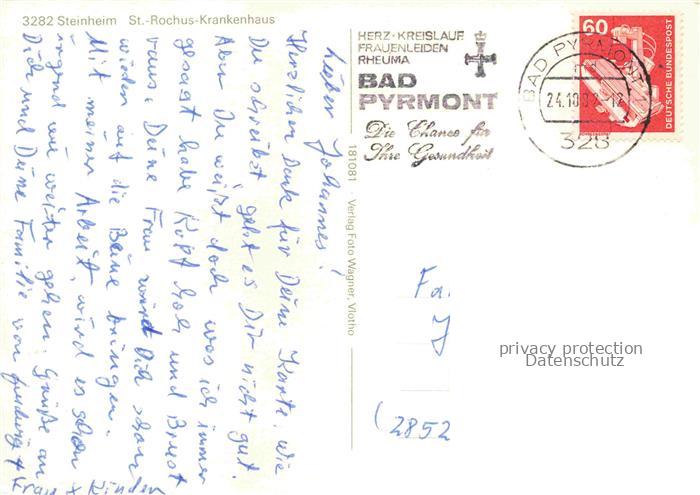 3282 Steinheim St.-Rochus-Krankenhaus
Lieber Johannes!
Herzlichen Dank für Deine Karte, wie
Du schreibst geht es Dir nicht gut.
Aber Du weißt doch was ich immer
gesagt habe Kopf hoch und Brust
raus, Deine Frau wird Dich schon
wieder auf die Beine bringen.
Mit meiner Arbeit, wird es schon
irgend wie weiter gehen. Grüße an
Dich und Deine Familie von
Frau + Kinder
181081 Verlag Foto Wagner, Vlotho
HERZ-KREISLAUF
FRAUENLEIDEN
RHEUMA
BAD
PYRMONT
Die Chance für
Ihre Gesundheit
BAD PYRMONT
24.10.
328
60
DEUTSCHE BUNDESPOST
Fa.
J
privacy protection
Datenschutz
(2852